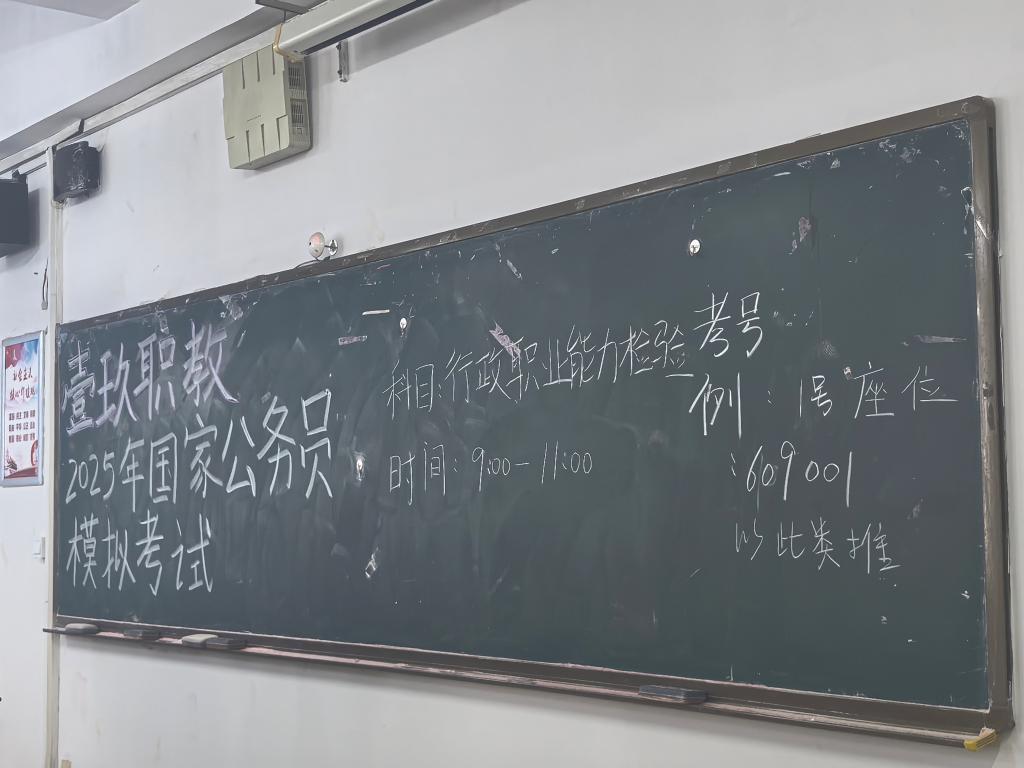 壹玖职教
2025年国家公务员
模拟考试
科目:行政职业能力检验
时间:9:00-11:00
考号
例:1号座位
:609001
以此类推